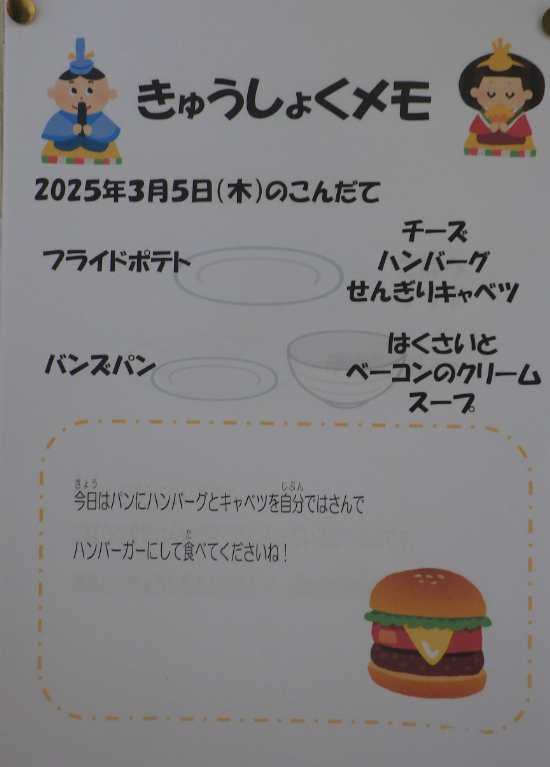 きゅうしょくメモ
2025年3月5日(木)のこんだて
フライドポテト
チーズ
ハンバーグ
せんぎりキャベツ
バンズパン
はくさいと
ベーコンのクリーム
スープ
きょう じぶん
今日はパンにハンバーグとキャベツを自分ではさんで
た
ハンバーガーにして食べてくださいね！